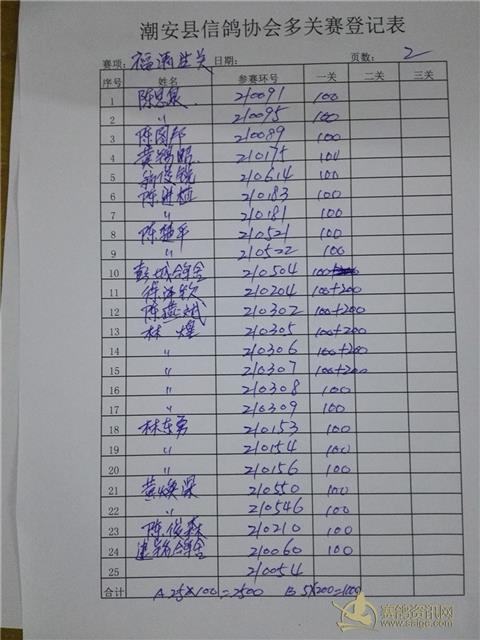 潮安县信鸽协会多关赛登记表
赛项: 福清三关 日期: 页数: 2
序号 姓名 参赛环号 一关 二关 三关
1 陈思泉 210091 100
2 〃 210095 100
3 陈图邦 210089 100
4 黄锡昭 210175 100
5 210614 100
6 陈进植 210183 100
7 〃 210181 100
8 陈楚平 210521 100
9 〃 210522 100
10 彭城鸽舍 210504 100
11 210204 100+200
12 陈燕斌 210302 100+200
13 林煌 210305 100+200
14 〃 210306 100+200
15 〃 210307 100+200
16 〃 210308 100
17 〃 210309 100
18 林东勇 210153 100
19 〃 210154 100
20 〃 210156 100
21 黄焕深 210550 100
22 〃 210546 100
23 陈俊森 210210 100
24 建锦鸽舍 210060 100
25 210054
合计 A 25×100=2500 B 5×200=1000
赛鸽资讯网
www.saige.com